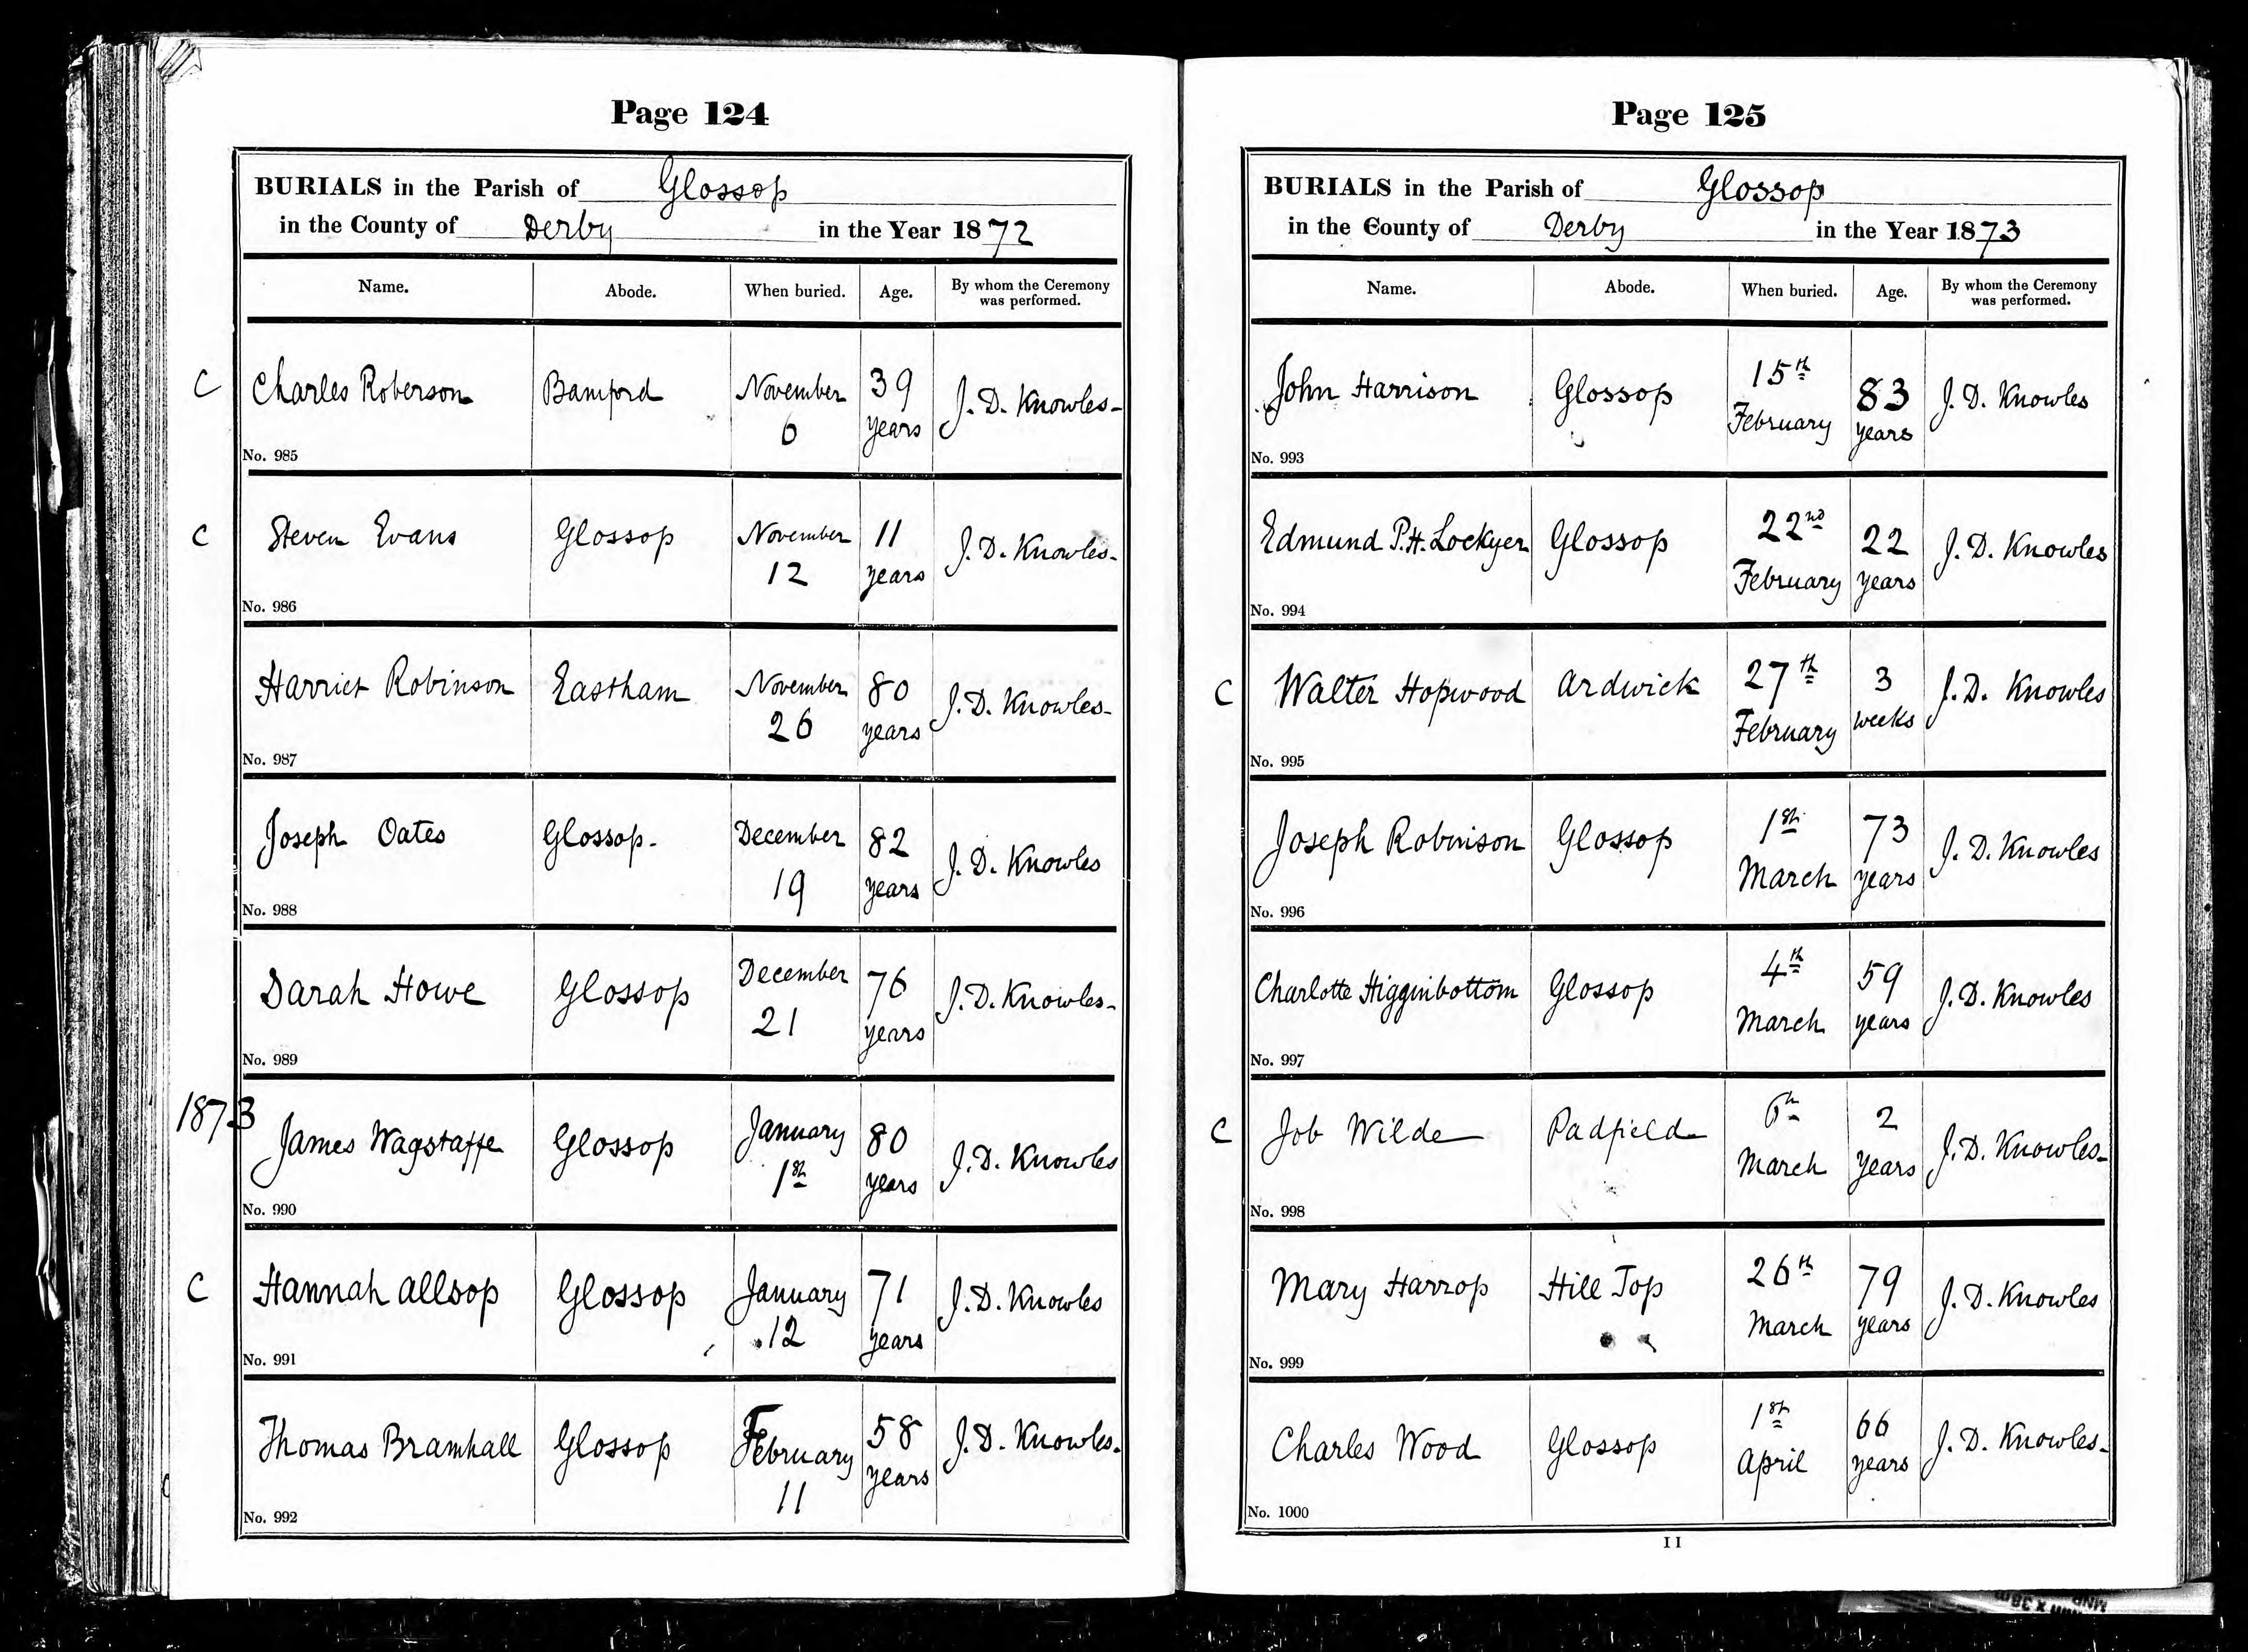 Page 124
BURIALS in the Parish of Glossop
in the County of Derby in the Year 1872
Name. Abode. When buried. Age. By whom the Ceremony was performed.
C Charles Roberson Bamford November 6 39 years J. D. Knowles-
No. 985
C Steven Evans Glossop November 12 11 years J. D. Knowles-
No. 986
Harriet Robinson Eastham November 26 80 years J. D. Knowles-
No. 987
Joseph Oates Glossop- December 19 82 years J. D. Knowles
No. 988
Sarah Howe Glossop December 21 76 years J. D. Knowles-
No. 989
1873
James Wagstaffe Glossop January 1st 80 years J. D. Knowles
No. 990
C Hannah Allsop Glossop January 12 71 years J. D. Knowles
No. 991
Thomas Bramhall Glossop February 11 58 years J. D. Knowles.
No. 992
Page 125
BURIALS in the Parish of Glossop
in the County of Derby in the Year 1873
Name. Abode. When buried. Age. By whom the Ceremony was performed.
John Harrison Glossop 15th February 83 years J. D. Knowles
No. 993
Edmund P. H. Lockyer Glossop 22nd February 22 years J. D. Knowles
No. 994
C Walter Hopwood Ardwick 27th February 3 weeks J. D. Knowles
No. 995
Joseph Robinson Glossop 1st March 73 years J. D. Knowles
No. 996
Charlotte Higginbottom Glossop 4th March 59 years J. D. Knowles
No. 997
C Job Wilde Padfield 6th March 2 years J. D. Knowles-
No. 998
Mary Harrop Hill Top 26th March 79 years J. D. Knowles
No. 999
Charles Wood Glossop 1st April 66 years J. D. Knowles-
No. 1000
11